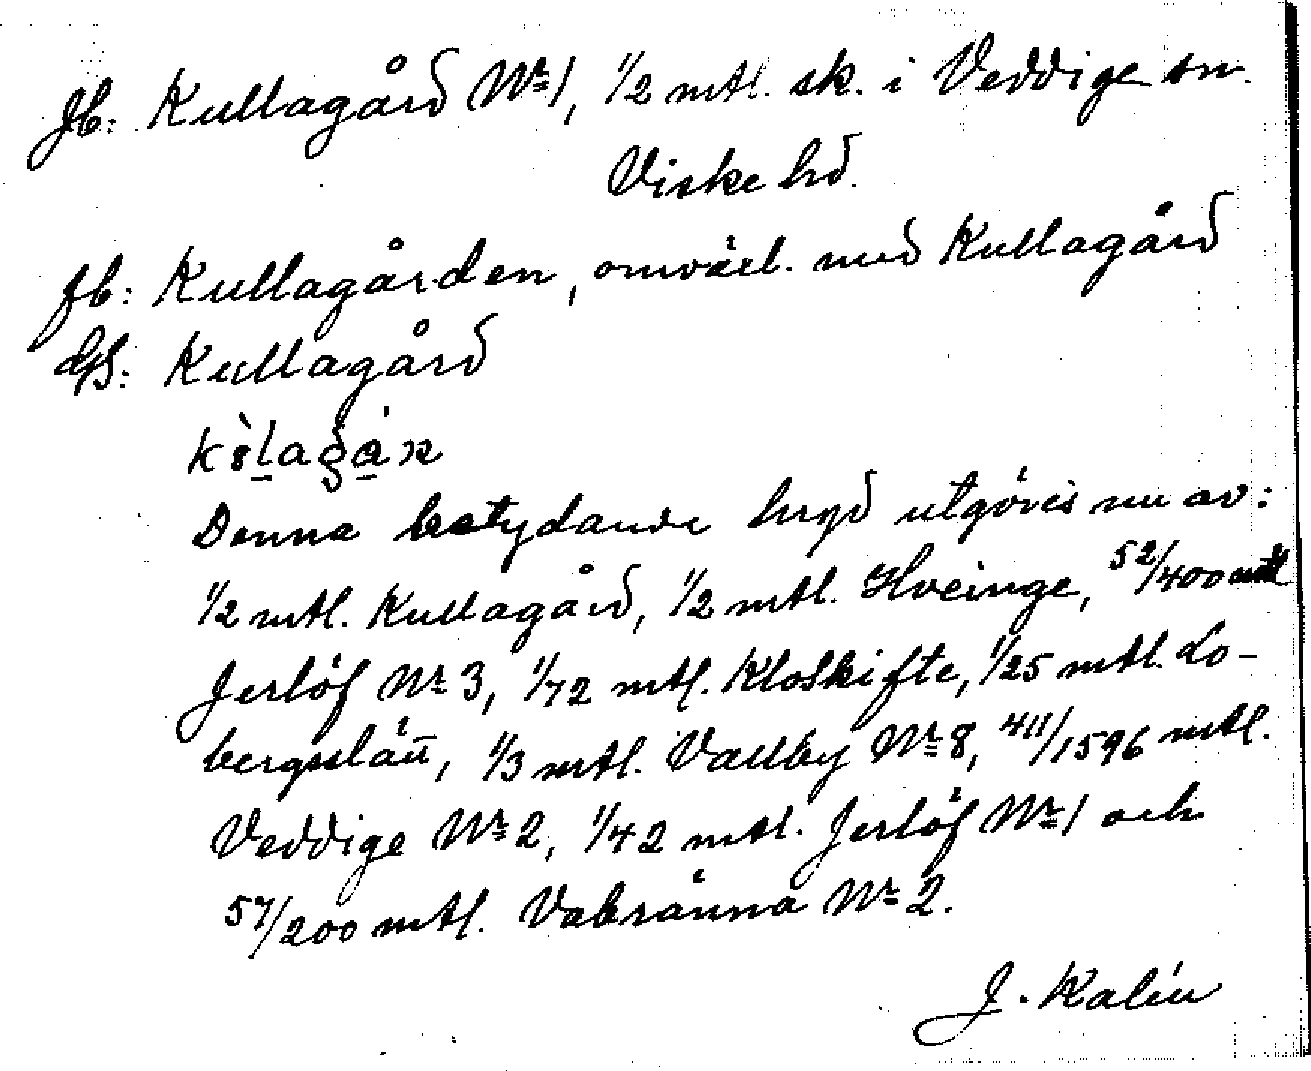 Jb: Kullagård No 1, 1/2 mtl. sk. i Veddige sn.
Viske hd.
fb: Kullagården, omväxl. med Kullagård
GS: Kullagård
Denna betydande hryd utgöres nu av:
1/2 mtl. Kullagård, 1/2 mtl. Hveinge, 52/400 mtl
Jerlöf Nr 3, 1/72 mtl. Kloskifte, 1/25 mtl. Lo-
bergsslätt, 1/3 mtl. Vallby Nr 8, 411/1596 mtl.
Veddige Nr 2, 1/42 mtl. Jerlöf Nr 1 och
57/200 mtl. Vabränna Nr 2.
J. Kalén